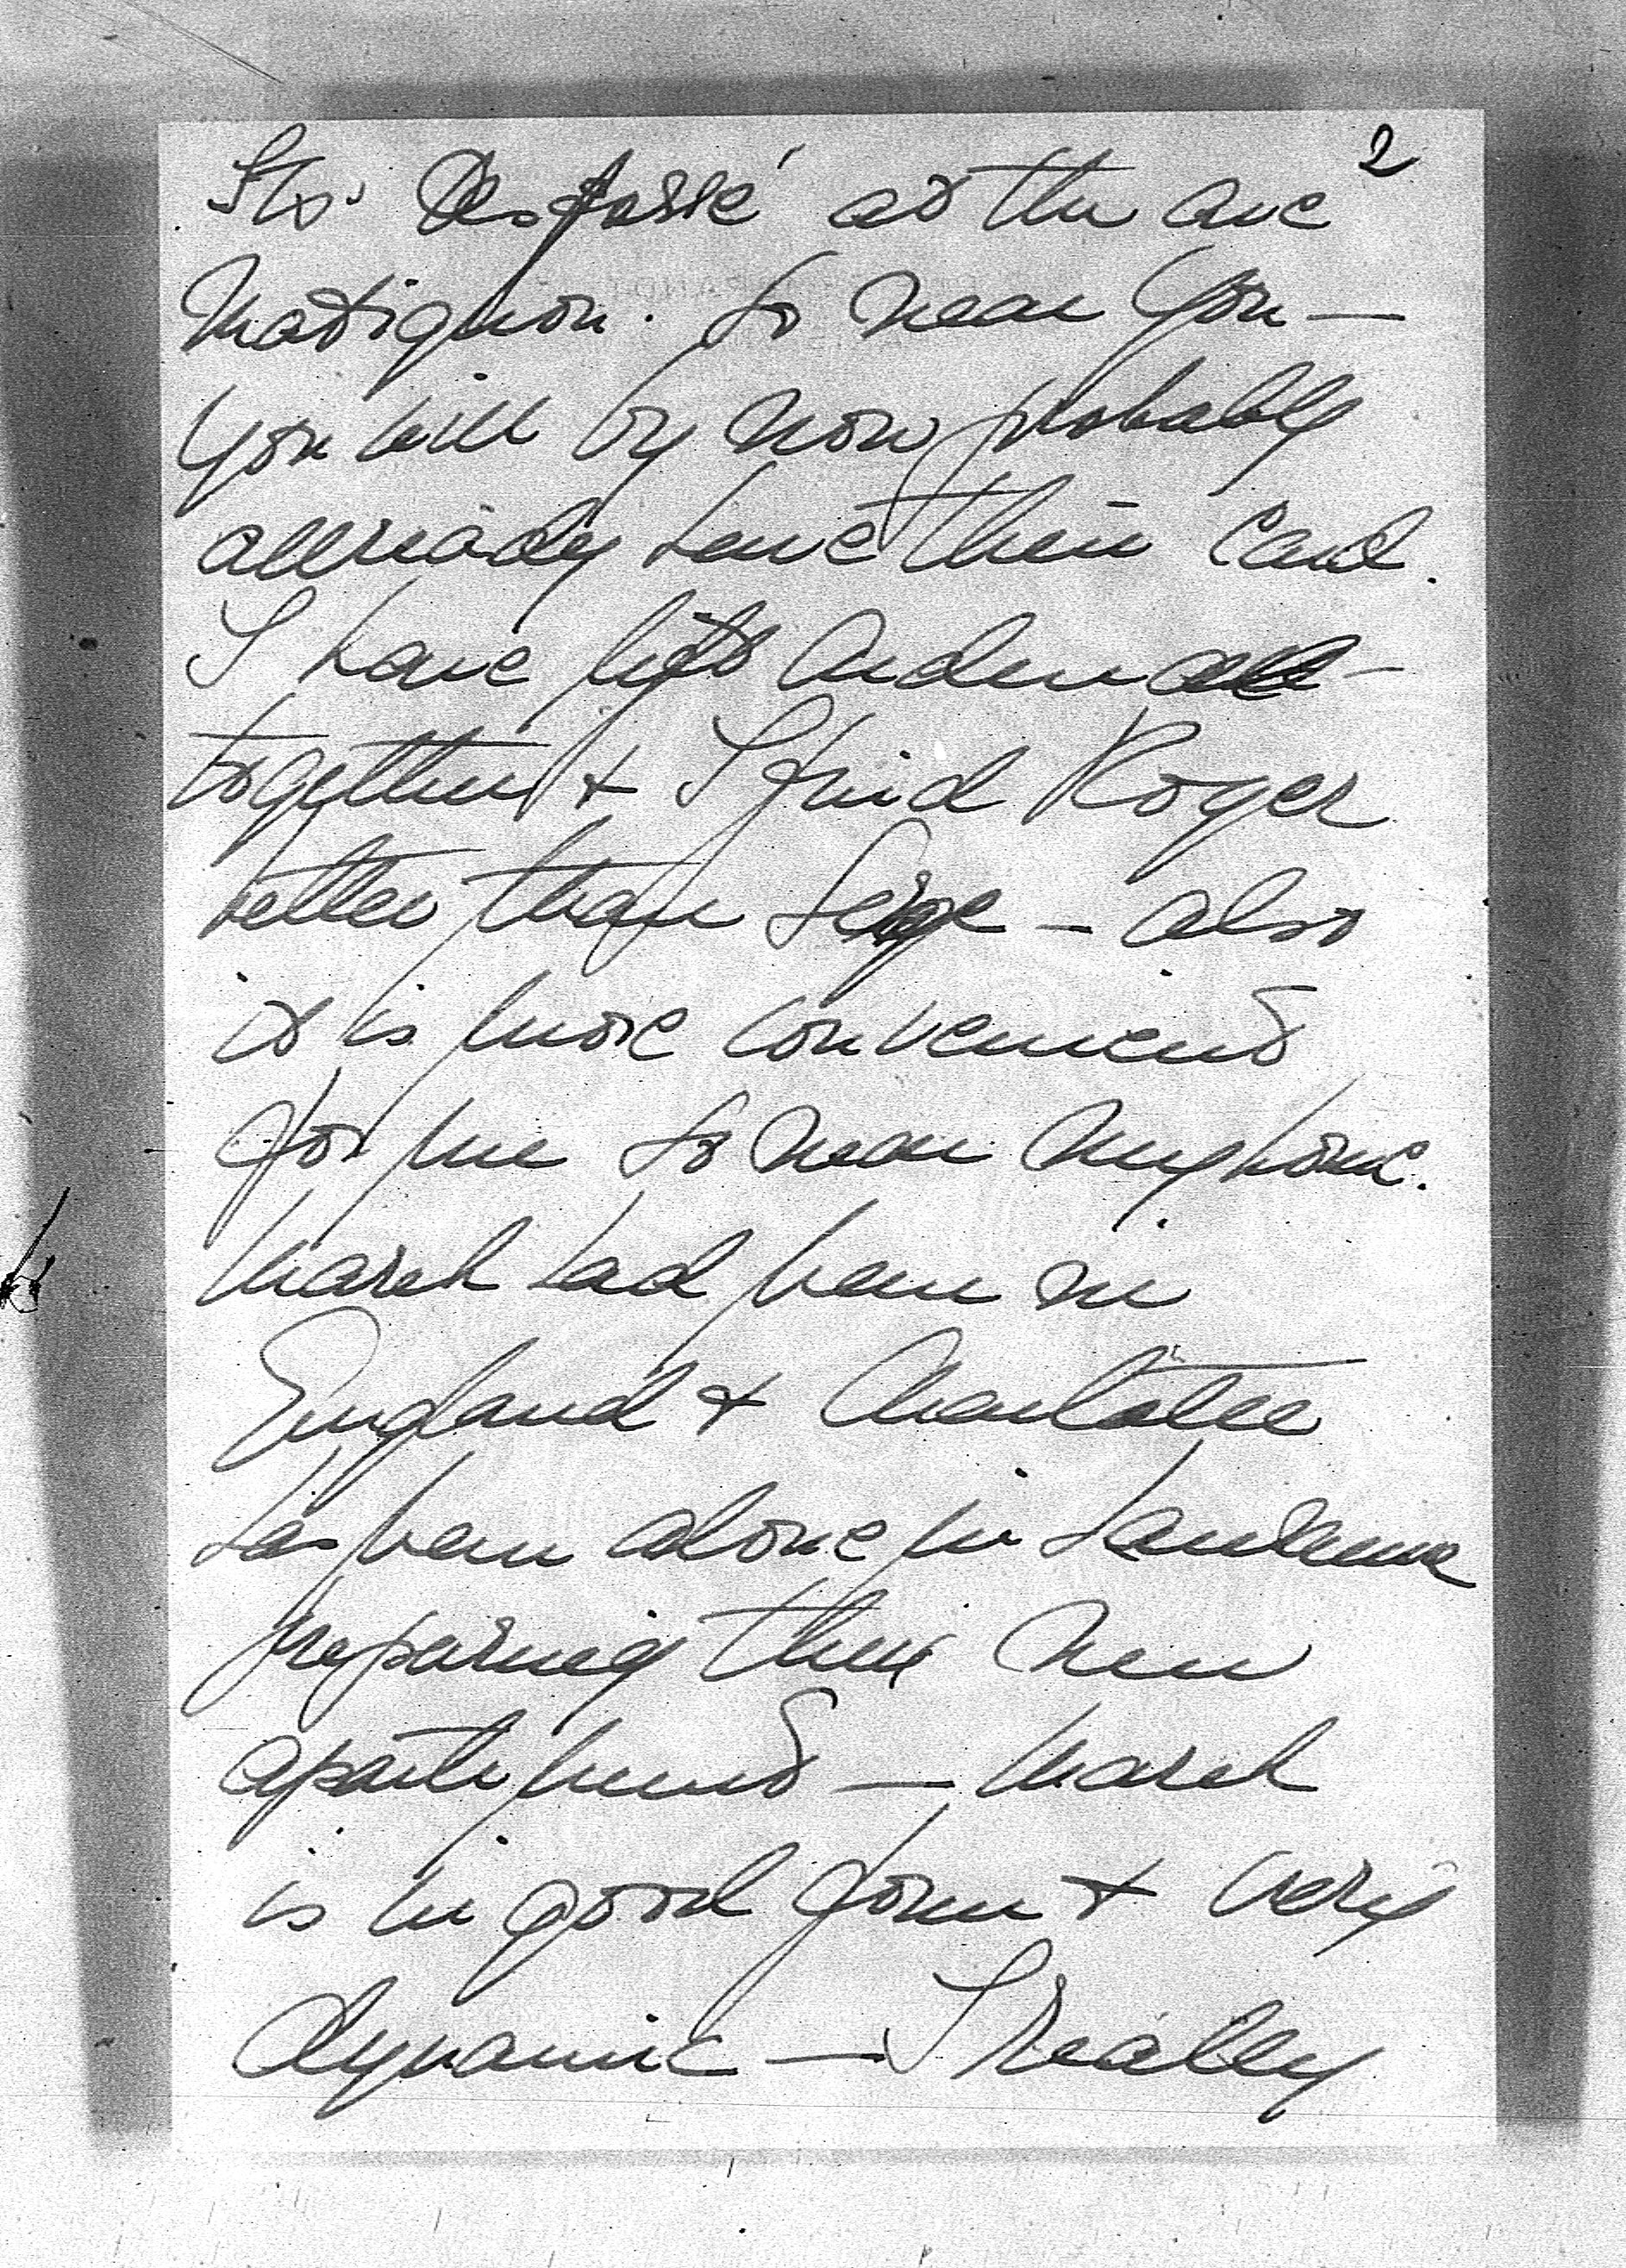 2
Its Desfossé at the ave
Matignon. So near you —
You will by now probably
allready have their card.
I have left Arden all-
together & I find Roger
better than Serge — also
it is more convenient
for me so near my home.
March had been in
England & Charlotte
has been alone in Lausanne
preparing their new
apartement — March
is in good form & very
dynamic — I really